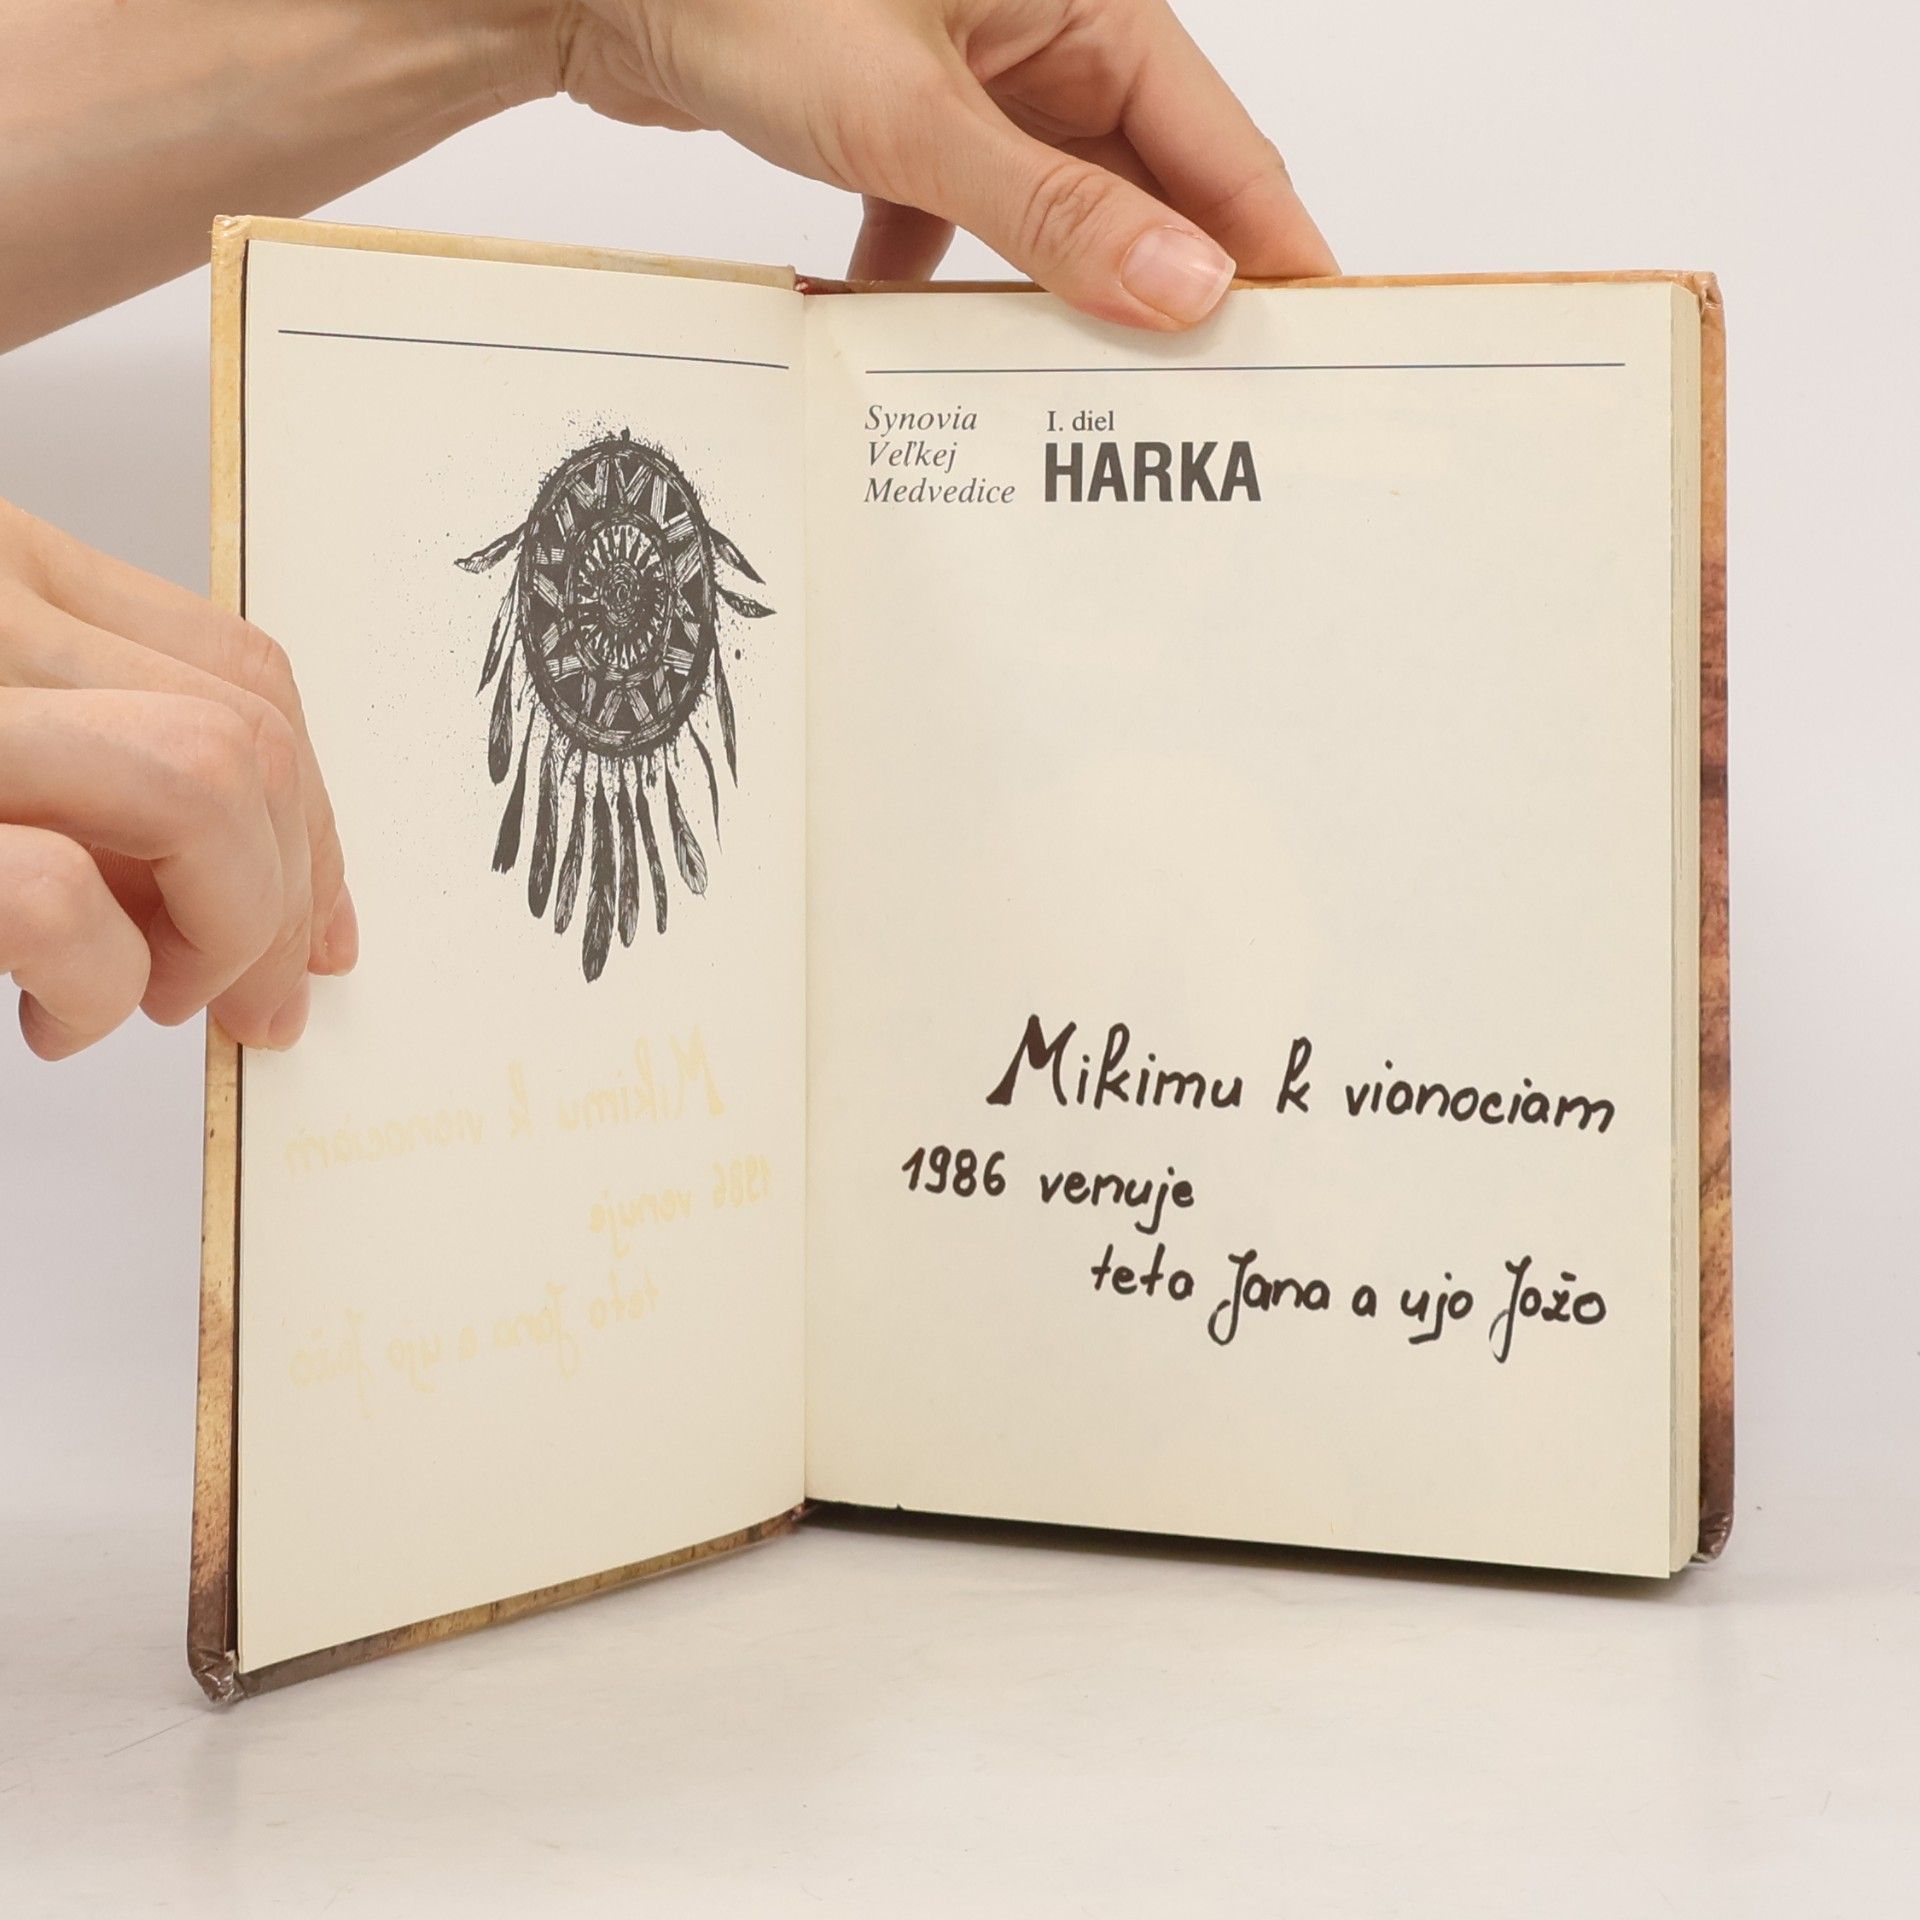 Synovia
Veľkej
Medvedice
I. diel
HARKA
Mikimu k vianociam
1986 venuje
teta Jana a ujo Jožo